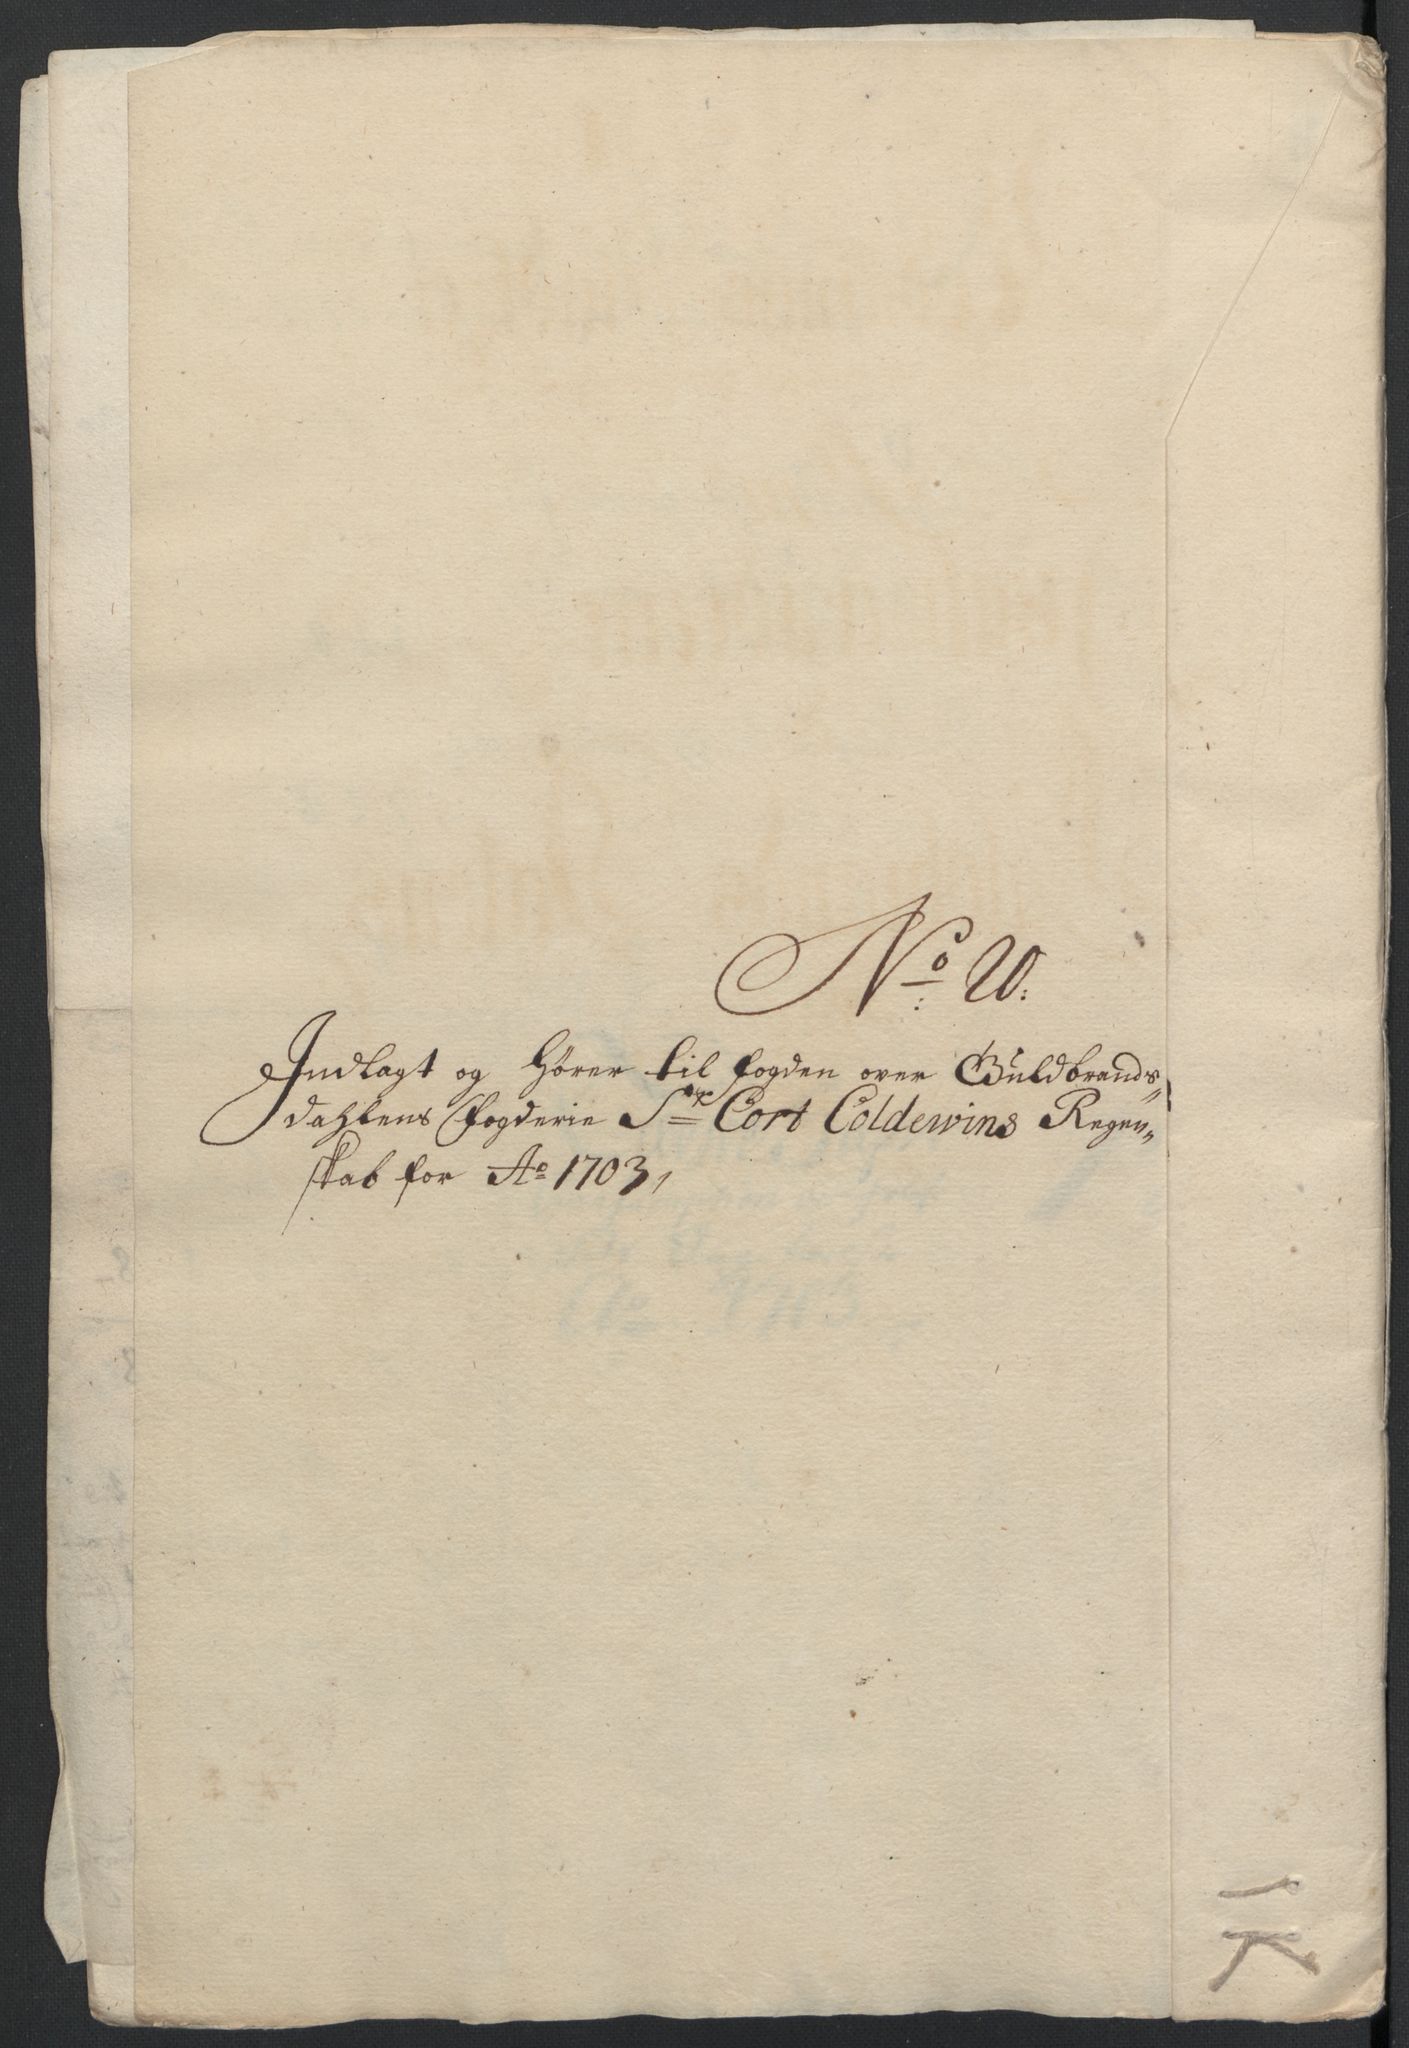 No W.
Indlagt og hører til fogden over Guldbrands„
dahlens fogderie Sr Cort Coldewins Regen„
skab for Ao 1703,